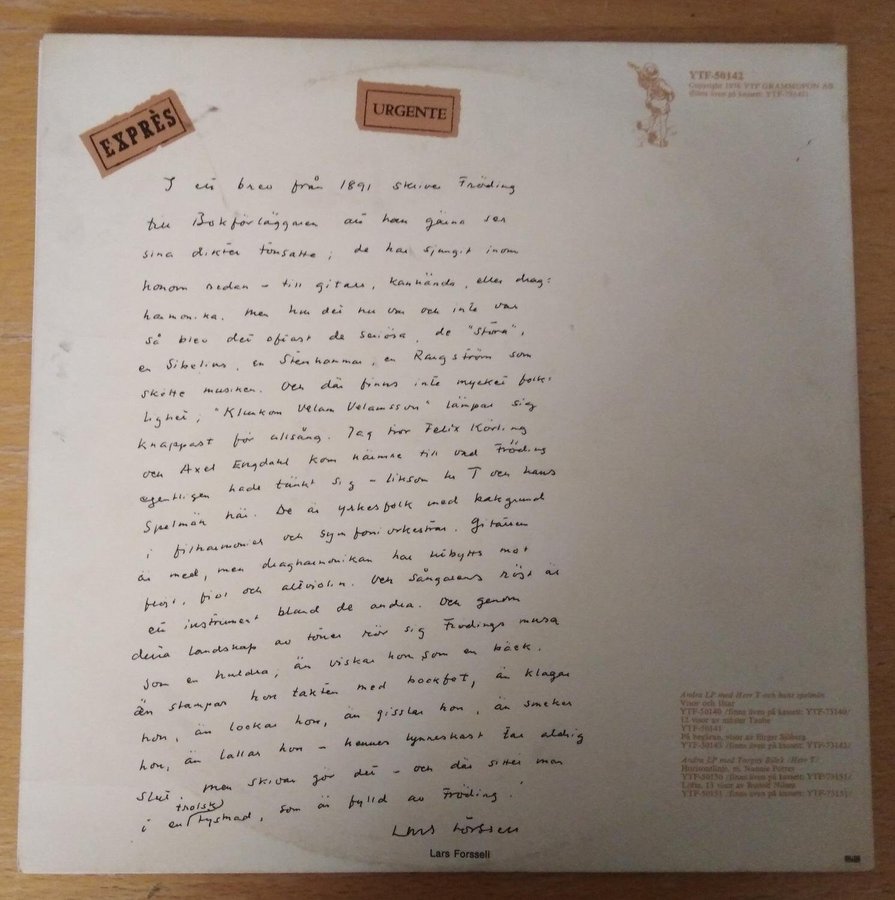 EXPRÈS
URGENTE
YTF-50142
Copyright 1976 YTF GRAMMOFON AB
(finns även på kassett: YTF-75142)
I ett brev från 1891 skriver Fröding
till Bokförläggaren att han gärna ser
sina dikter tonsatta; de har sjungit inom
honom redan – till gitarr, kanhända, eller drag-
harmonika. Men hur det nu var och inte var
så blev det oftast de seriösa, de "stora",
en Sibelius, en Stenhammar, en Rangström som
skötte musiken. Och där finns inte mycket folk-
lighet; "Klinkom Velam Velamsson" lämpar sig
knappast för allsång. Jag tror Felix Körling
och Axel Engdahl kom närmre till vad Fröding
egentligen hade tänkt sig – liksom hr T och hans
Spelmän här. De är yrkesfolk med bakgrund
i filharmonier och symfoniorkestrar. Gitarren
är med, men dragharmonikan har utbytts mot
flöjt, fiol och altviolin. Och Sångarens röst är
ett instrument bland de andra. Och genom
detta landskap av toner rör sig Frödings musa
som en huldra; än viskar hon som en bäck,
än stampar hon takten med bockfot, än klagar
hon, än lockar hon, än gisslar hon, än smeker
hon, än lallar hon – hennes lynneskast tar aldrig
slut. Men skivan gör det – och där sitter man
i en trolsk tystnad, som är fylld av Fröding.
Lars Forssell
Lars Forssell
Andra LP med Herr T och hans spelmän
Visor och låtar
YTF-50140 /finns även på kassett: YTF-75140/
12 visor av mäster Taube
YTF-50141
På begäran, visor av Birger Sjöberg
YTF-50145 /finns även på kassett: YTF-75145/
Andra LP med Torgny Björk /Herr T/
YTF-50150 /finns även på kassett: YTF-75151/
Löfte, 13 visor av Rustad
YTF-50151 /finns även på kassett: YTF-75151/